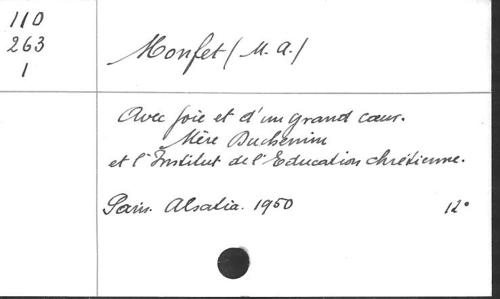 110
263
1
Monfet (M. A.)
Avec joie et d'un grand cœur.
Mère Duchemin
et l'Institut de l'Education chrétienne.
Paris. Alsatia. 1950
12°